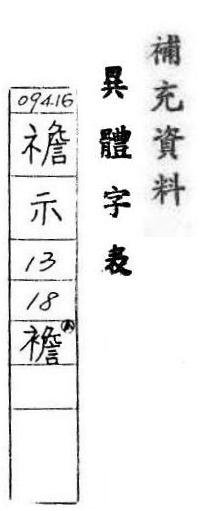 補充資料
異體字表
09416
襜
示
13
18
襜